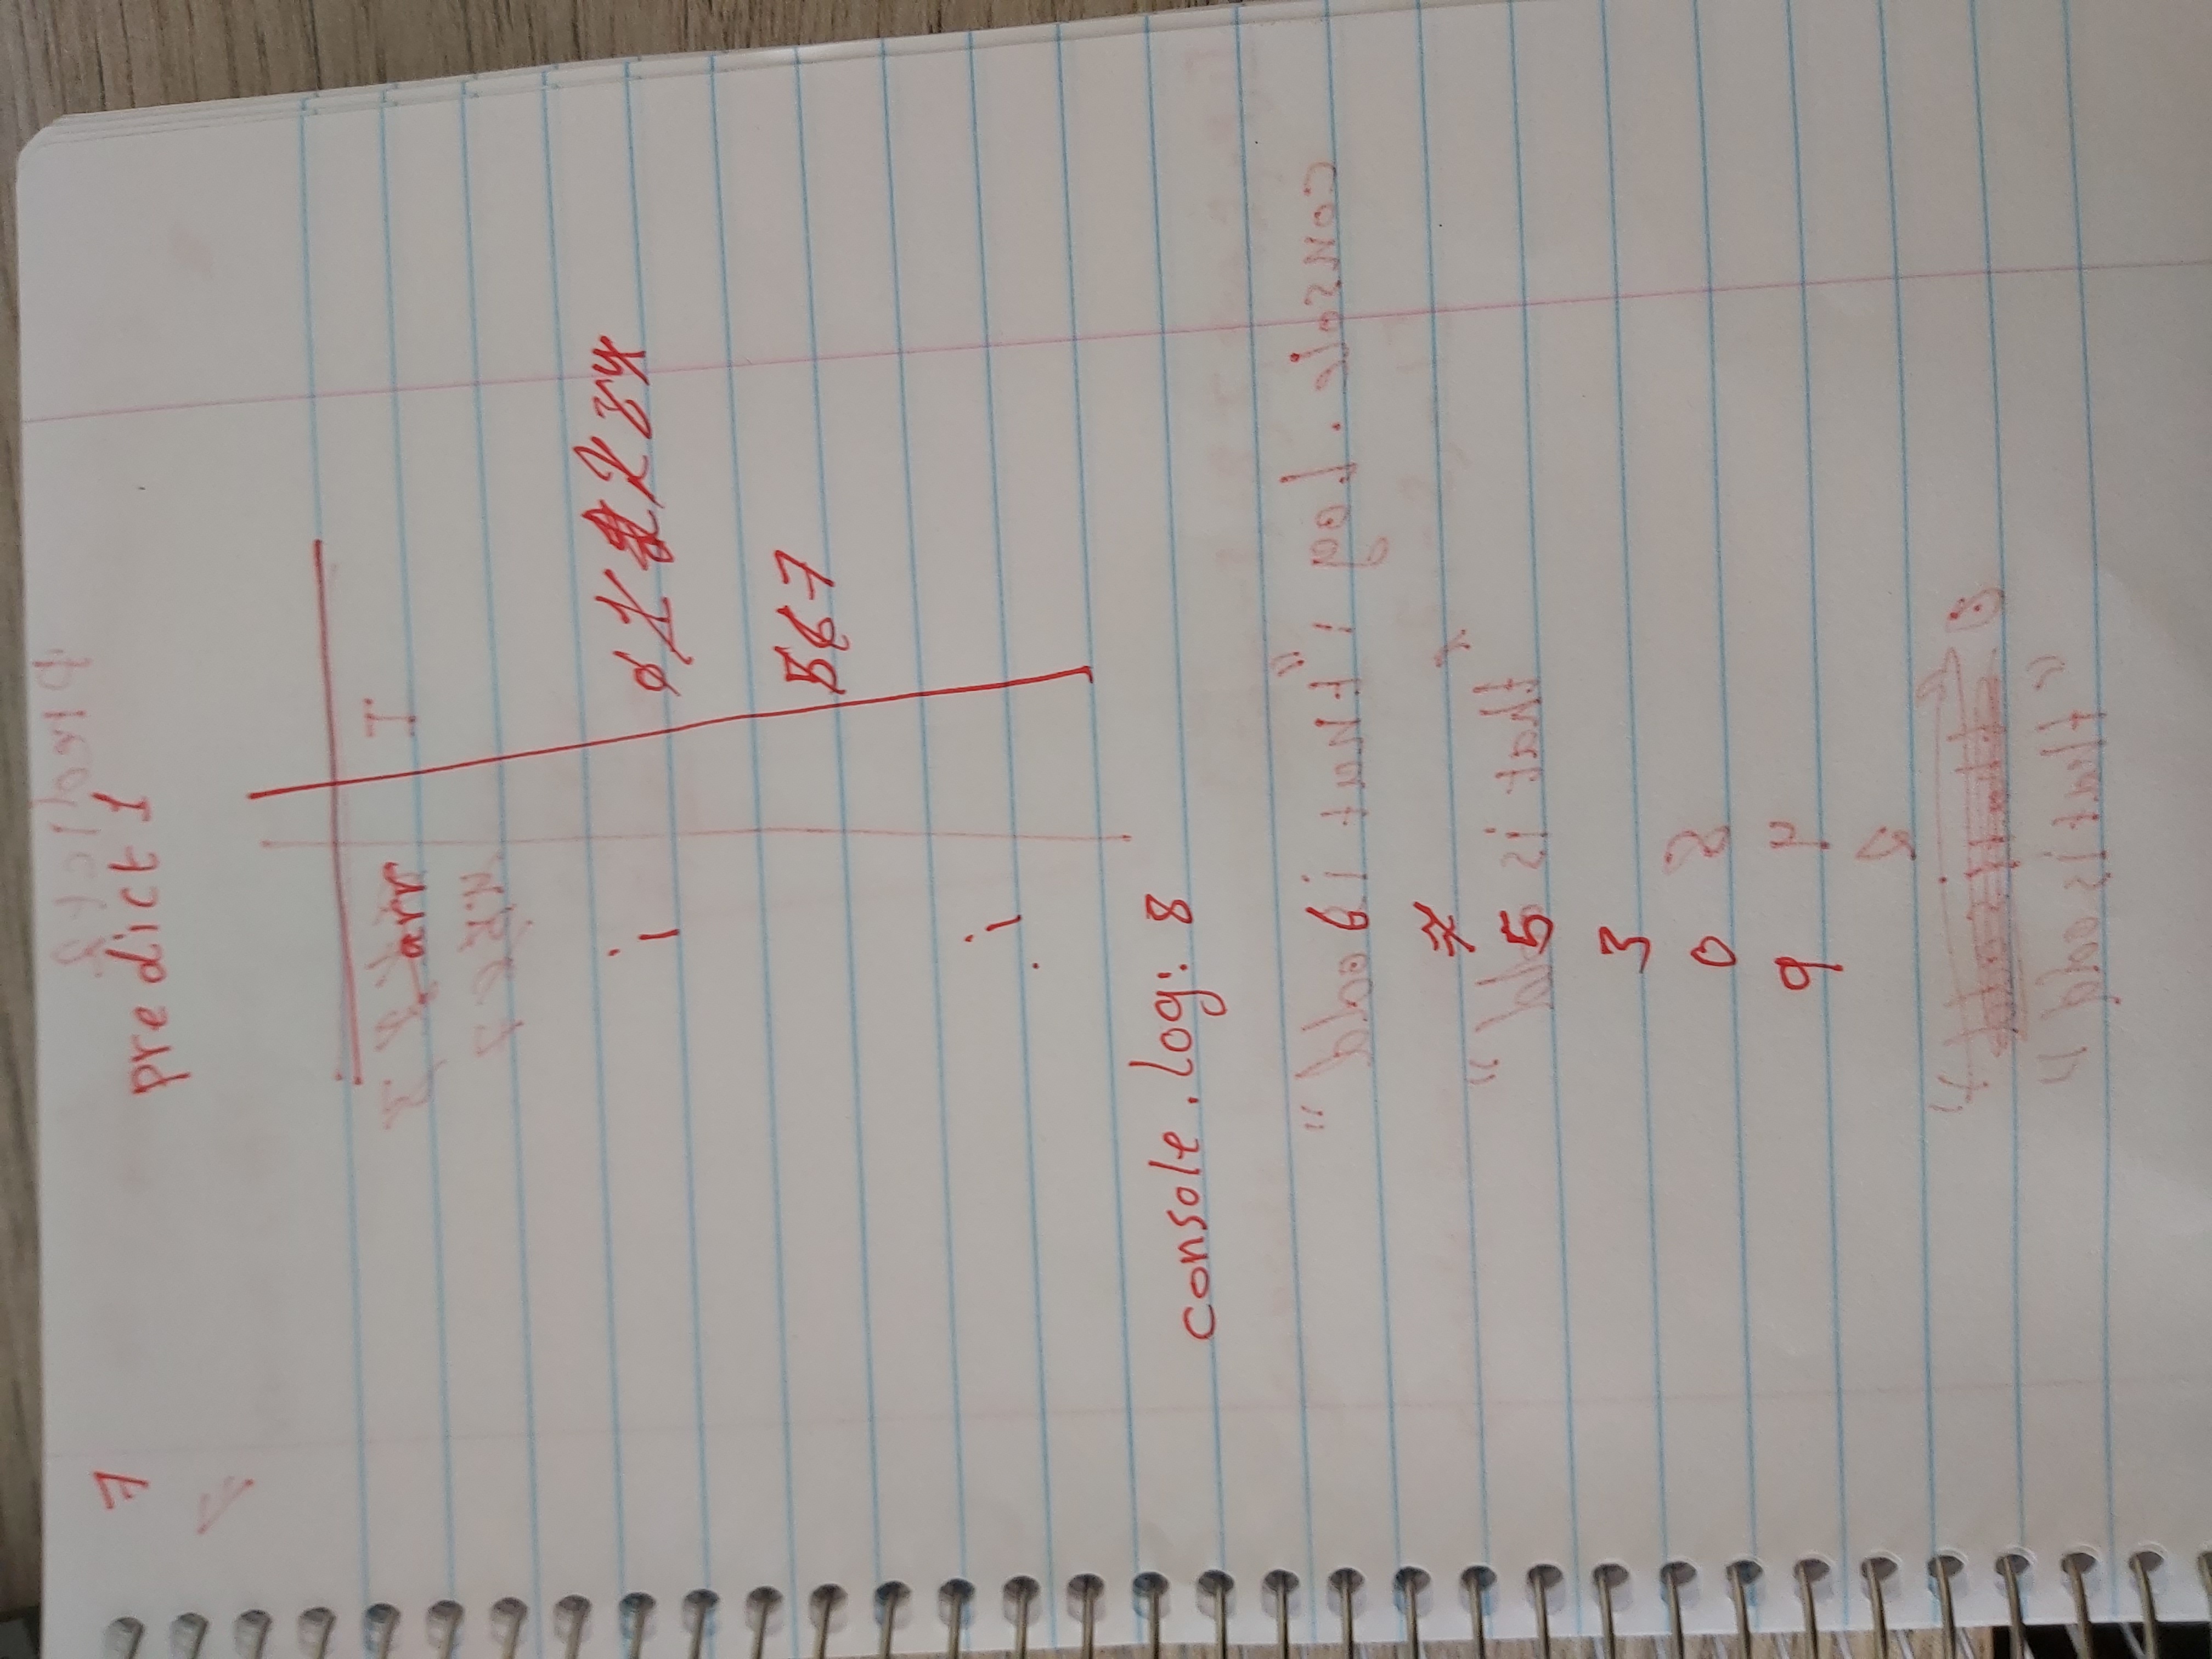 7
predict 1
arr
i 0 1 2 2 3 4
5 6 7
i
console.log: 8
6
7
5
3
0
9